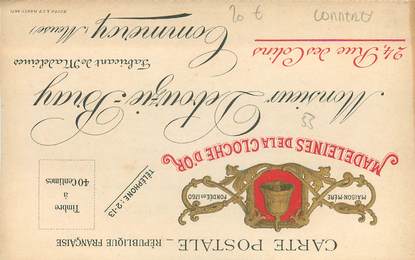 CARTE POSTALE _ RÉPUBLIQUE FRANÇAISE
MAISON-MÈRE
FONDÉE EN 1760
MADELEINES DE LA CLOCHE D'OR
Timbre
à
40 Centimes
TÉLÉPHONE: 2-13
Monsieur Debouzie-Bray
Fabricant de Madeleines
24, Rue des Colins
Commercy (Meuse)
55
20 €
COMMERCY